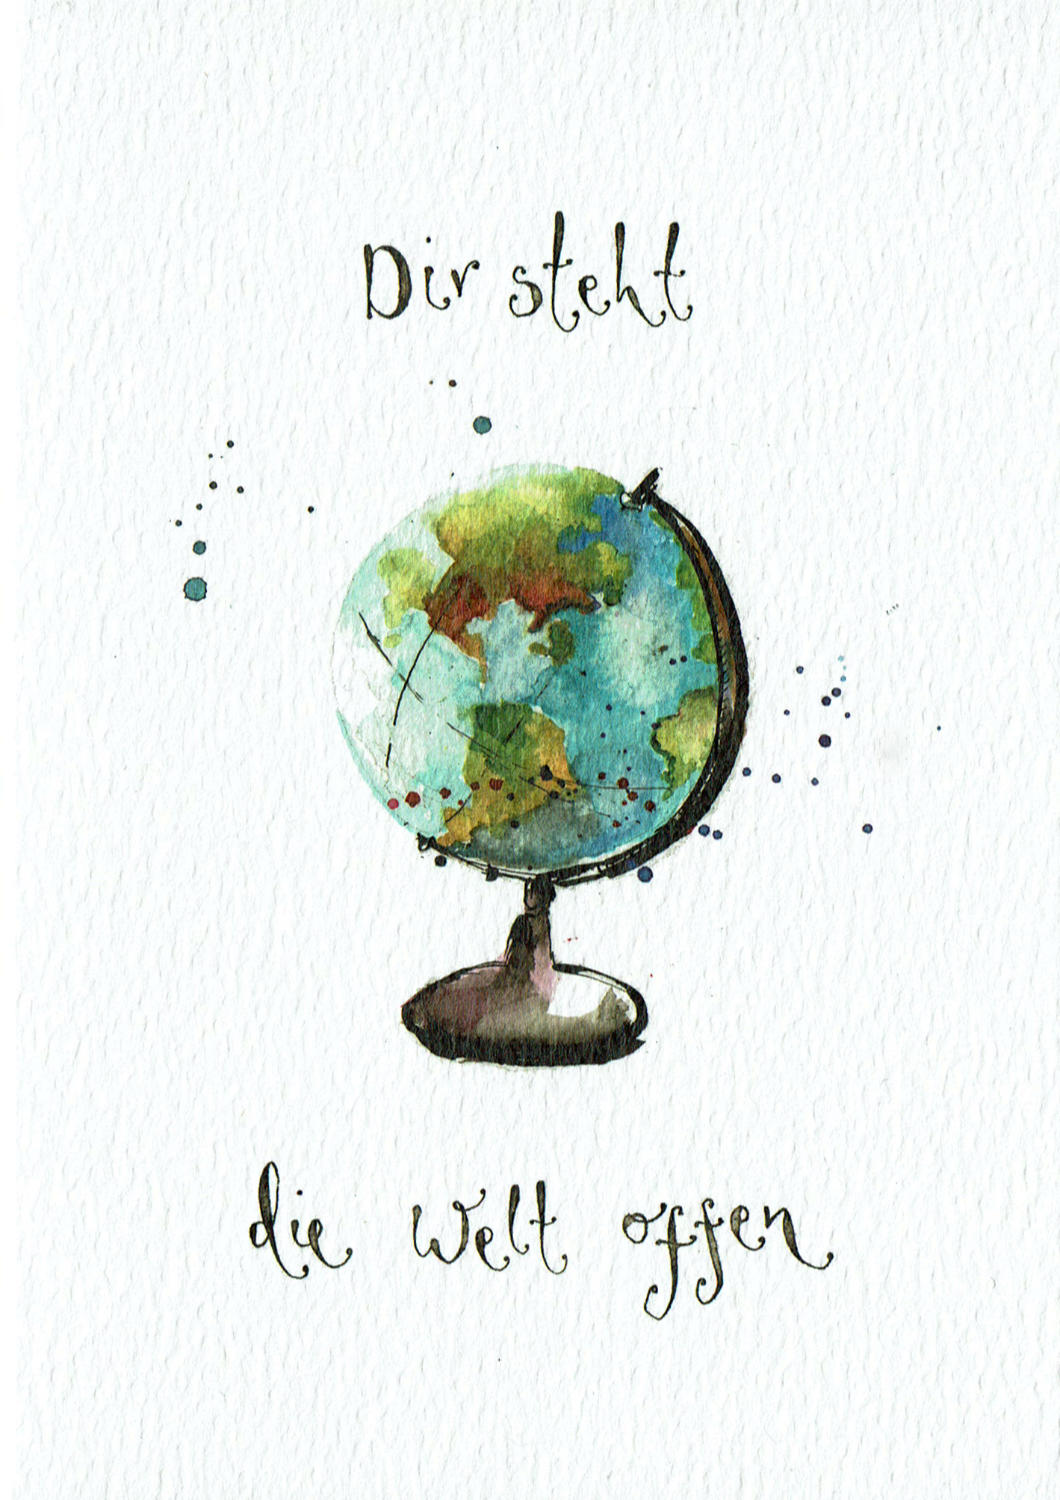 Dir steht
die Welt offen